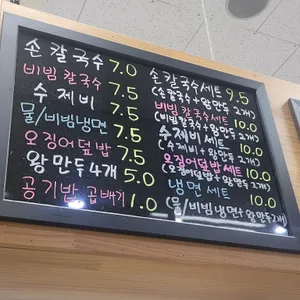 손칼국수 7.0
비빔칼국수 7.5
수제비 7.5
물/비빔냉면 7.5
오징어덮밥 7.5
왕만두4개 5.0
공기밥 곱빼기 1.0
손칼국수세트 9.5
(손칼국수+왕만두2개)
비빔칼국수세트 10.0
(비빔칼국수+왕만두2개)
수제비세트 10.0
(수제비+왕만두2개)
오징어덮밥세트 10.0
(오징어덮밥+왕만두2개)
냉면세트 10.0
(물/비빔냉면+왕만두2개)